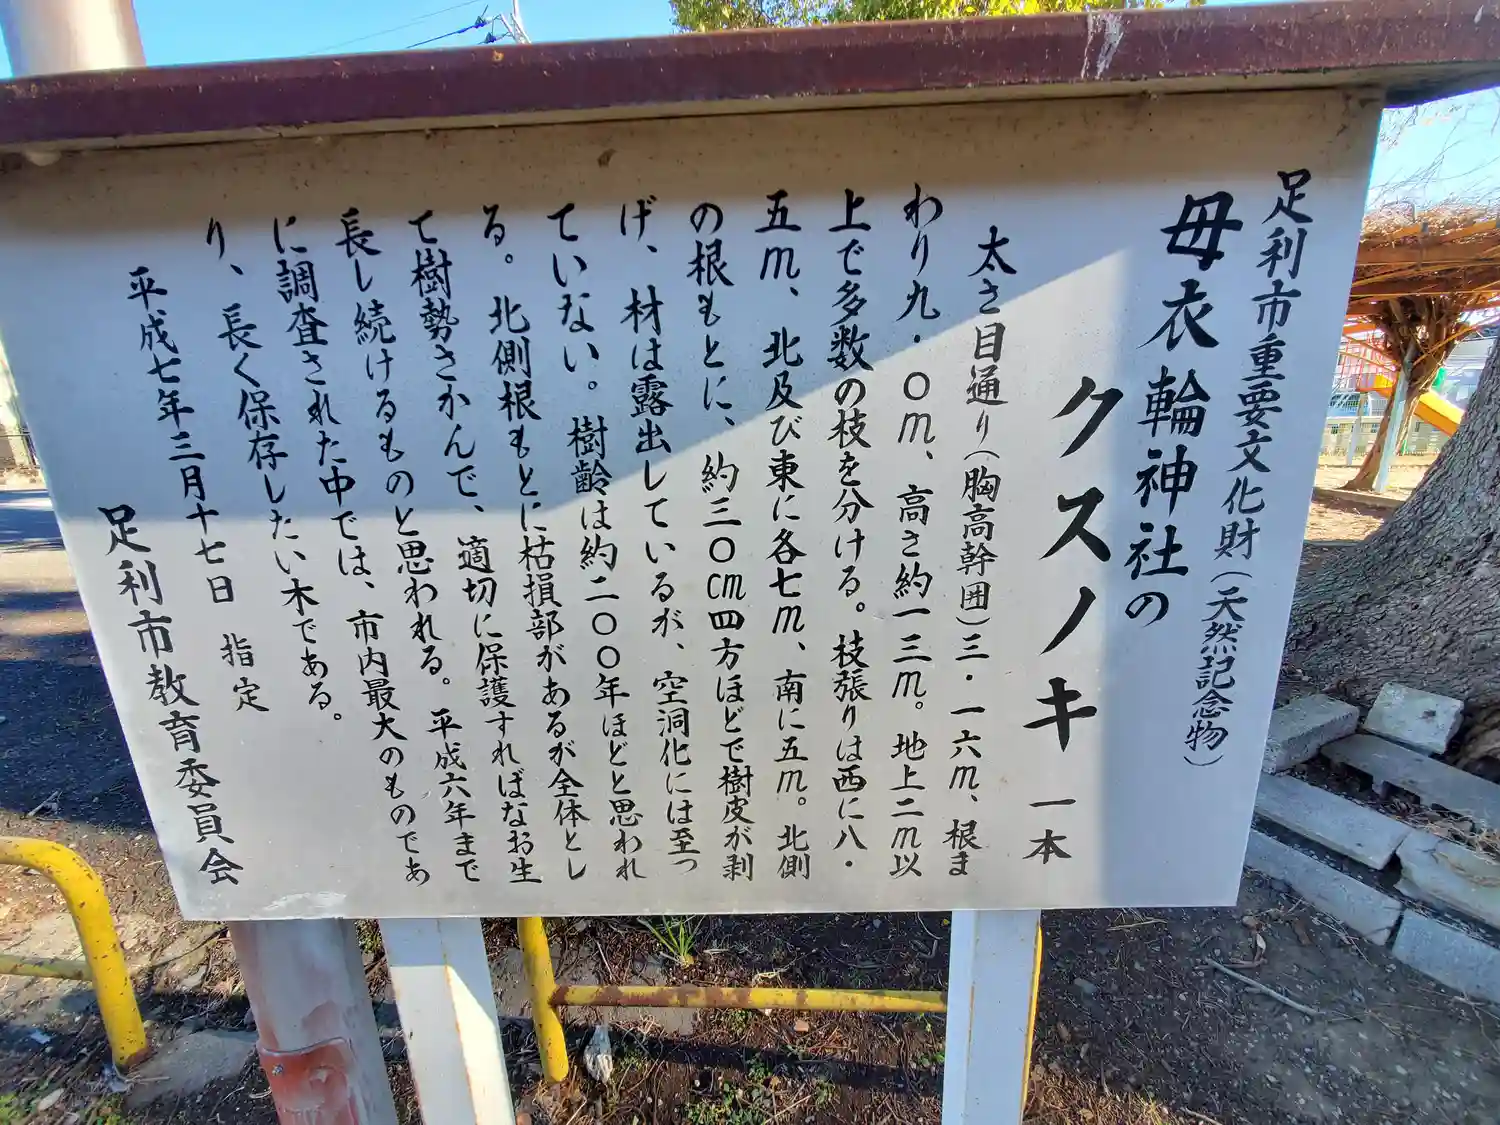 足利市重要文化財(天然記念物)
母衣輪神社の
クスノキ 一本
太さ目通り(胸高幹囲)三・一六m、根ま
わり九・〇m、高さ約一三m。地上二m以
上で多数の枝を分ける。枝張りは西に八・
五m、北及び東に各七m、南に五m。北側
の根もとに、約三〇cm四方ほどで樹皮が剥
げ、材は露出しているが、空洞化には至っ
ていない。樹齢は約二〇〇年ほどと思われ
る。北側根もとに枯損部があるが全体とし
て樹勢さかんで、適切に保護すればなお生
長し続けるものと思われる。平成六年まで
に調査された中では、市内最大のものであ
り、長く保存したい木である。
平成七年三月十七日 指定
足利市教育委員会